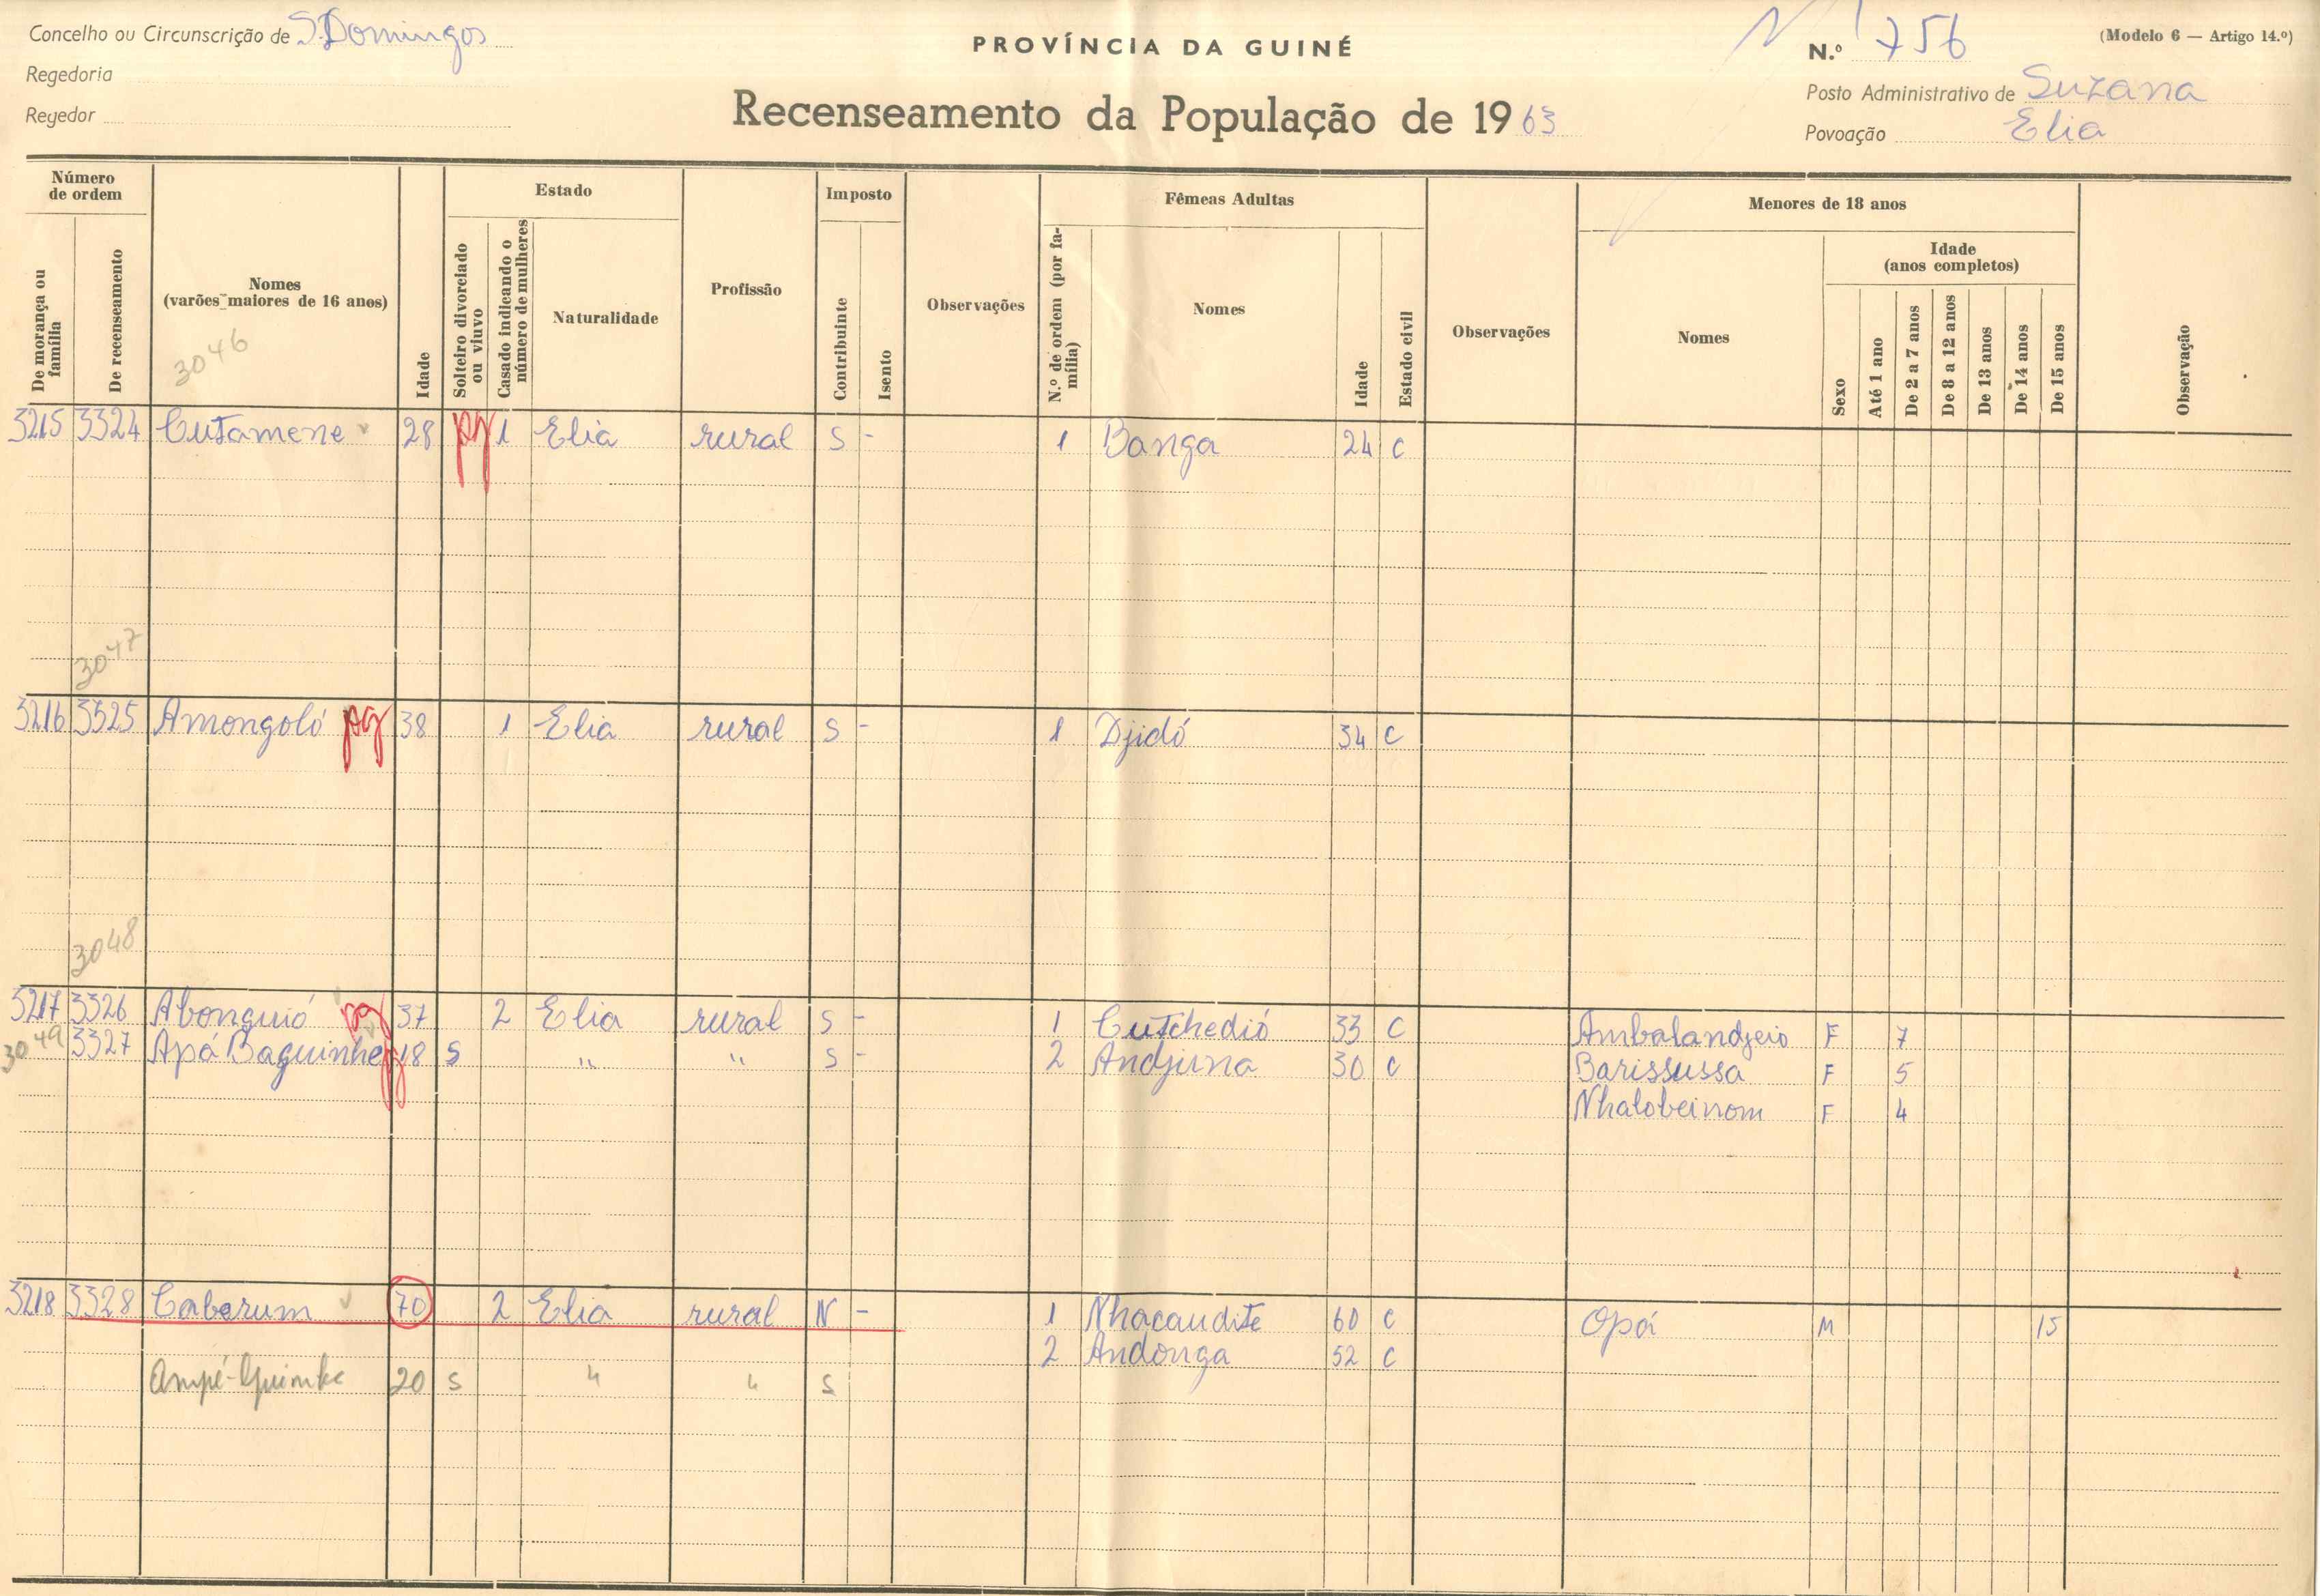 Concelho ou Circunscrição de S. Domingos
PROVÍNCIA DA GUINÉ
N.º 756
(Modelo 6 — Artigo 14.º)
Regedoria
Posto Administrativo de Suzana
Regedor
Recenseamento da População de 1963
Povoação Elia
Número de ordem
Estado
Imposto
Fêmeas Adultas
Menores de 18 anos
Idade (anos completos)
De morança ou família
De recenseamento
Nomes (varões maiores de 16 anos)
Idade
Solteiro divorciado ou viuvo
Casado indicando o número de mulheres
Naturalidade
Profissão
Contribuinte
Isento
Observações
N.º de ordem (por família)
Nomes
Idade
Estado civil
Observações
Nomes
Sexo
Até 1 ano
De 2 a 7 anos
De 8 a 12 anos
De 13 anos
De 14 anos
De 15 anos
Observação
3046
3215 3324 Cutamene 28 pg 1 Elia rural S - 1 Banga 24 C
3047
3216 3325 Amongoló pg 38 1 Elia rural S - 1 Djidó 34 C
3048
3217 3326 Abonguió pg 37 2 Elia rural S - 1 Cutchedió 33 C Ambalandjeio F 7
3049 3327 Apá Baguinhe pg 18 S " " S - 2 Andjuna 30 C Barissussa F 5
Nhalobeinom F 4
3218 3328 Caberum 70 2 Elia rural N - 1 Nhacaudite 60 C Opá M 15
2 Andonga 52 C
Ampé-Guimbe 20 S " " S